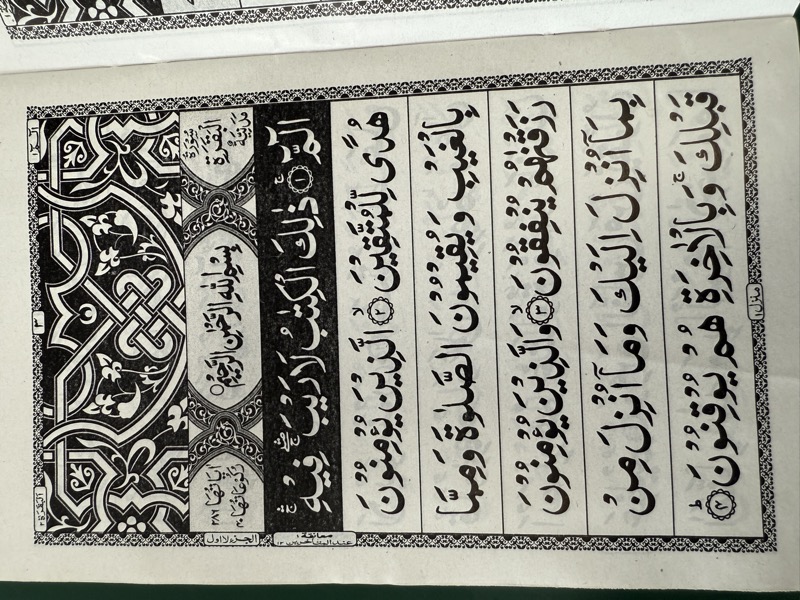 الٓمّٓ ١
٣
البقرة ٢
سُوْرَةُ الْبَقَرَةِ مَدَنِيَّةٌ
بِسْمِ اللّٰهِ الرَّحْمٰنِ الرَّحِيْمِ
اٰيَاتُهَا ٢٨٦ رُكُوْعَاتُهَا ٤٠
الٓمّٓ ۚ ١ ذٰلِكَ الْكِتٰبُ لَا رَيْبَ ۛۚ فِيْهِ ۛۚ
هُدًى لِّلْمُتَّقِيْنَ ۙ ٢ الَّذِيْنَ يُؤْمِنُوْنَ
بِالْغَيْبِ وَ يُقِيْمُوْنَ الصَّلٰوةَ وَمِمَّا
رَزَقْنٰهُمْ يُنْفِقُوْنَ ۙ ٣ وَالَّذِيْنَ يُؤْمِنُوْنَ
بِمَآ اُنْزِلَ اِلَيْكَ وَمَآ اُنْزِلَ مِنْ
قَبْلِكَ ۚ وَ بِالْاٰخِرَةِ هُمْ يُوْقِنُوْنَ ؕ ٤
الجزء الاول
معانقة ١
منزل ١